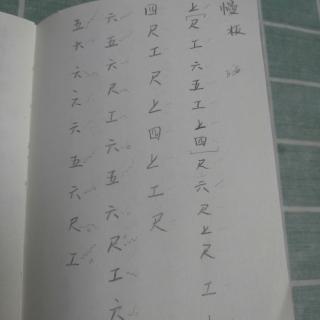 慢板
上尺工六五工上四尺六尺上尺工
四尺工尺上四上工尺
六五六尺工六五六尺工六
五六六六六五六尺工